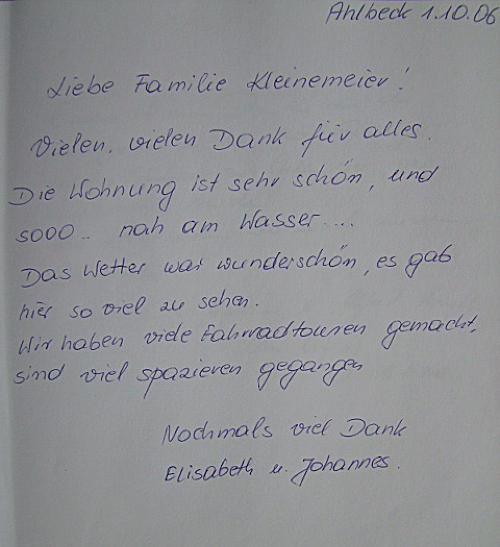 Ahlbeck 1.10.06
Liebe Familie Kleinemeier!
Vielen, vielen Dank für alles.
Die Wohnung ist sehr schön, und
sooo.. nah am Wasser....
Das Wetter war wunderschön, es gab
hier so viel zu sehen.
Wir haben viele Fahrradtouren gemacht,
sind viel spazieren gegangen
Nochmals viel Dank
Elisabeth u. Johannes.